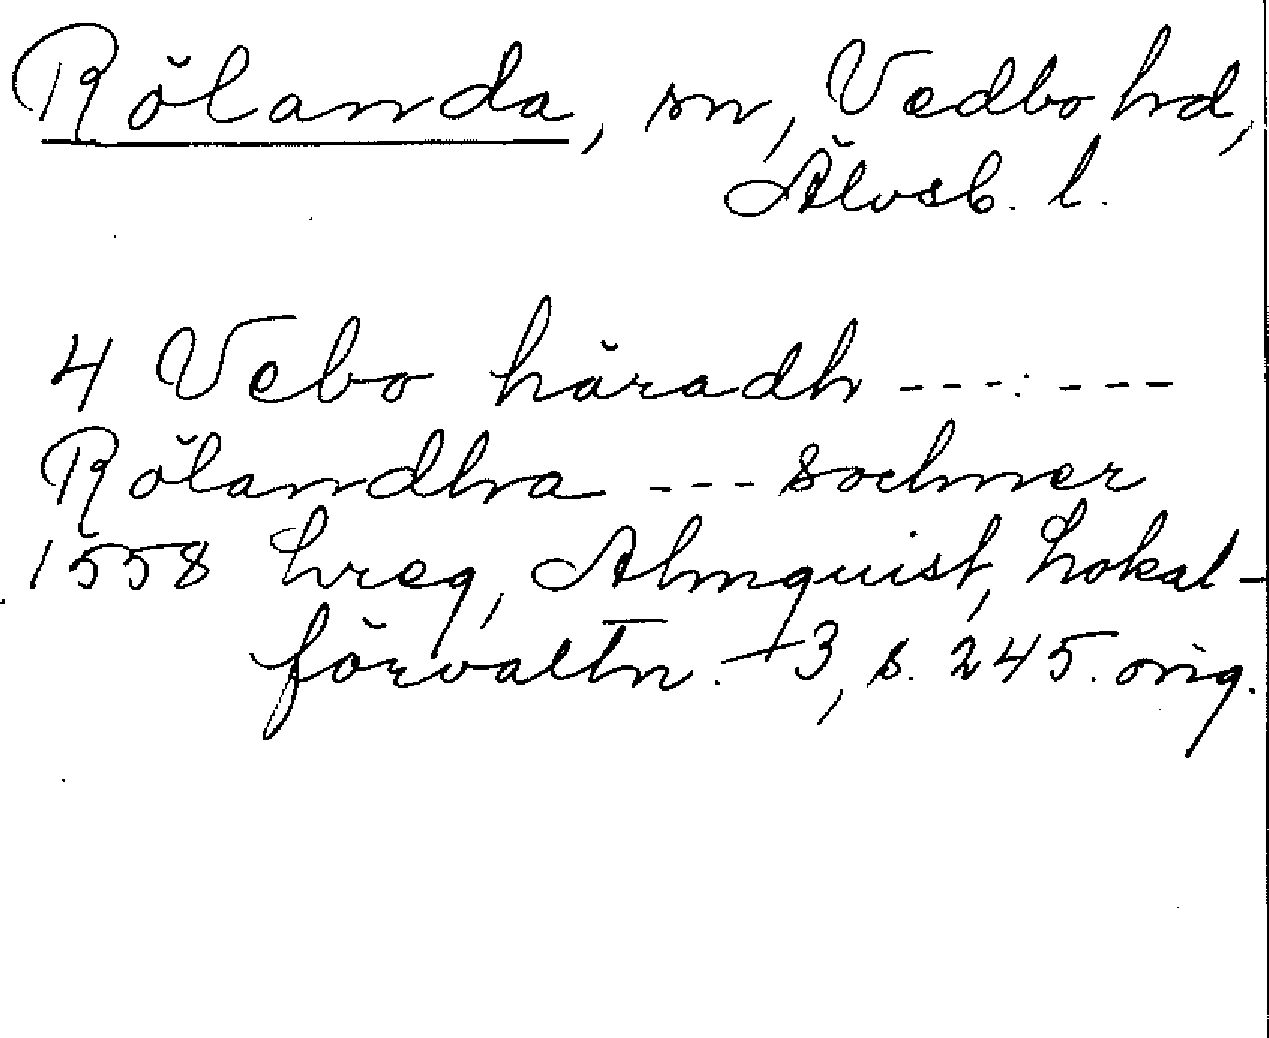 Rölanda, sn, Vedbo hd,
Älvsb. l.
4 Vebo häradh ---:---
Rölandha --- sochner
1558 Lreg, Almquist, Lokal-
förvaltn. +3, s. 245. orig.